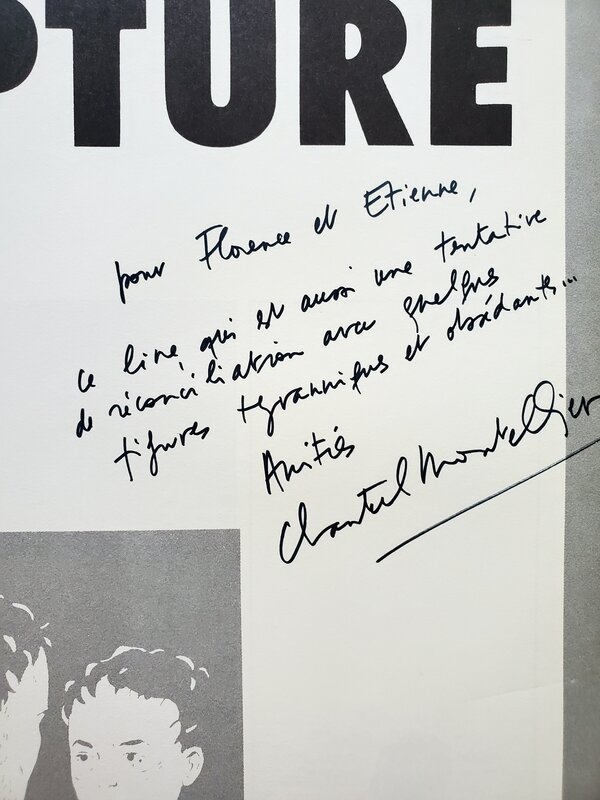 PTURE
pour Florence et Etienne,
ce livre, qui est aussi une tentative
de réconciliation avec quelques
figures tyranniques et obsédantes...
Amitiés
Chantal Montellier